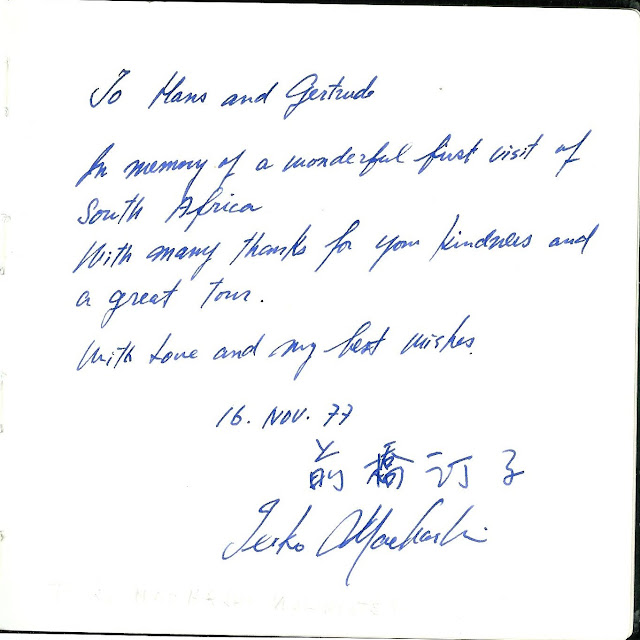 To Hans and Gertrude
In memory of a wonderful first visit of
South Africa
With many thanks for your kindness and
a great tour.
With Love and my best wishes.
16. NOV. 77
前橋汀子
Teiko Maehashi